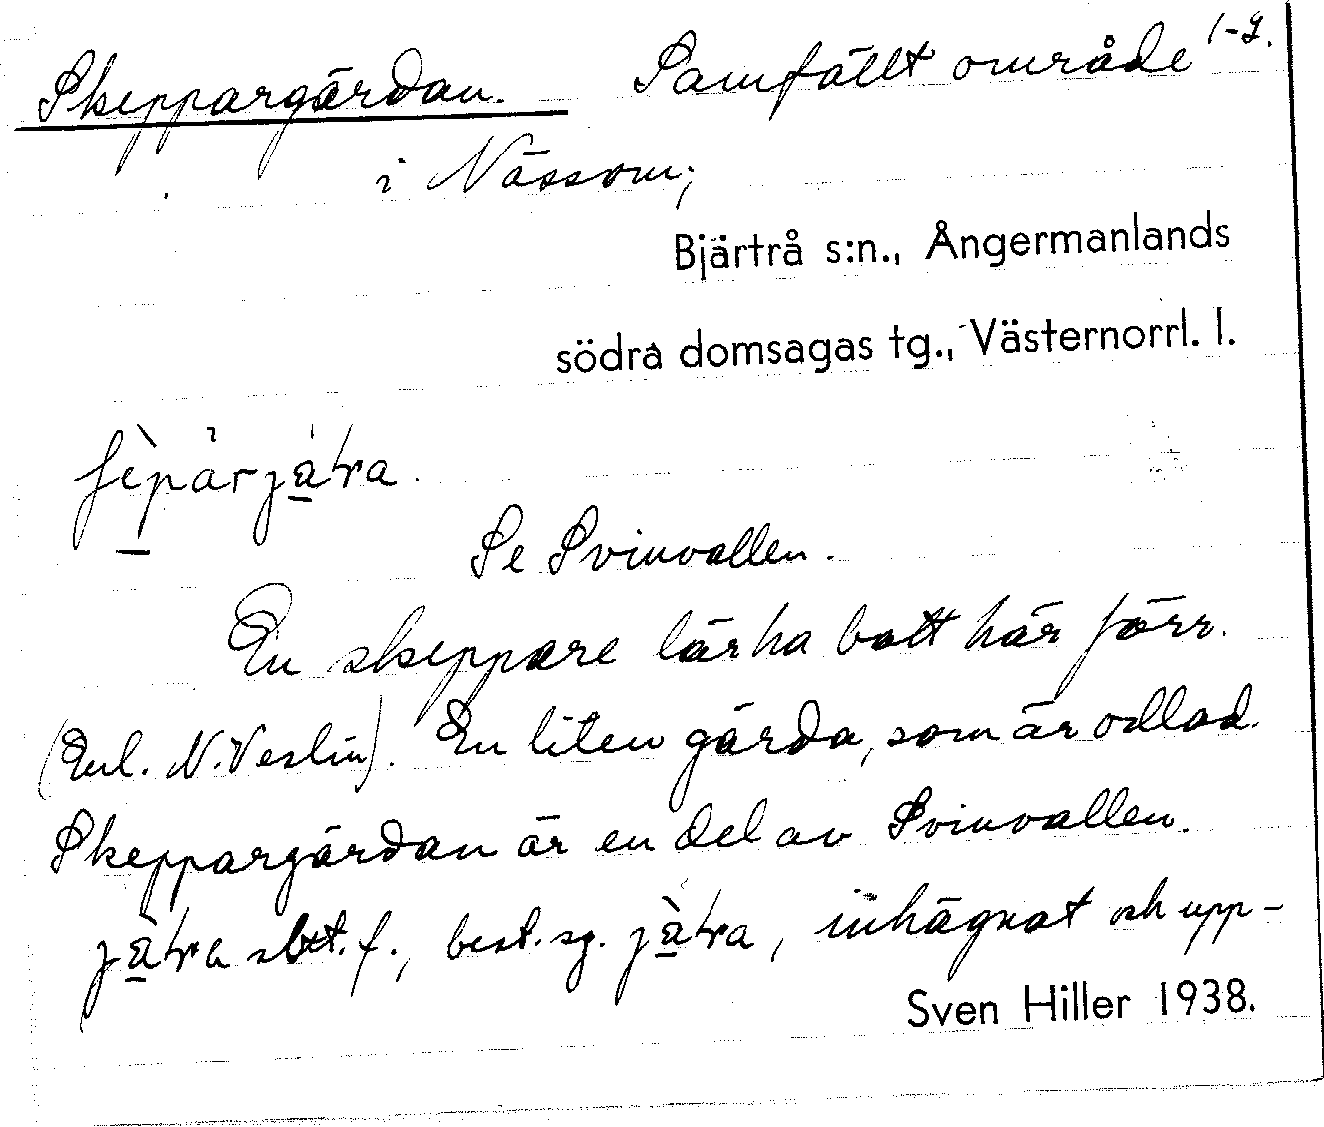 Skeppargärdan. Samfällt område 1-2.
i Nässom;
Bjärtrå s:n., Ångermanlands
södra domsagas tg., Västernorrl. l.
Se Svinvallen.
En skeppare lär ha bott här förr.
(Enl. N. Veslin). En liten gärda, som är odlad.
Skeppargärdan är en del av Svinvallen.
sbst. f., best. sg. , inhägnat och upp-
Sven Hiller 1938.